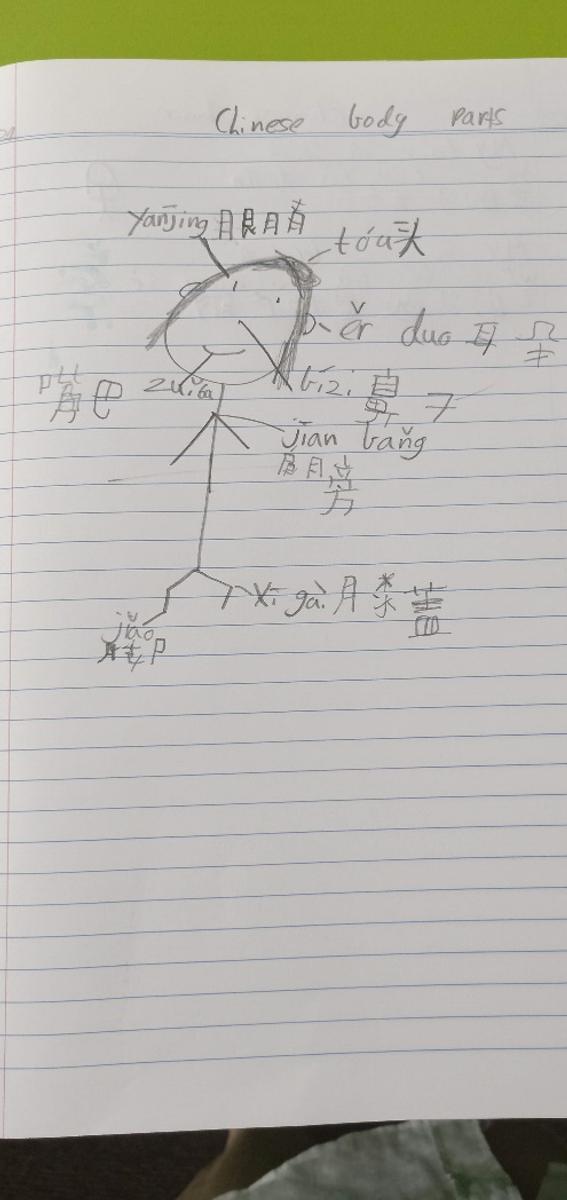 Chinese body parts
yǎnjing 眼睛
tóu 头
ěr duo 耳朵
zuǐba
嘴巴
bízi 鼻子
jiān bǎng
肩膀
xī gài 膝盖
jiǎo
脚